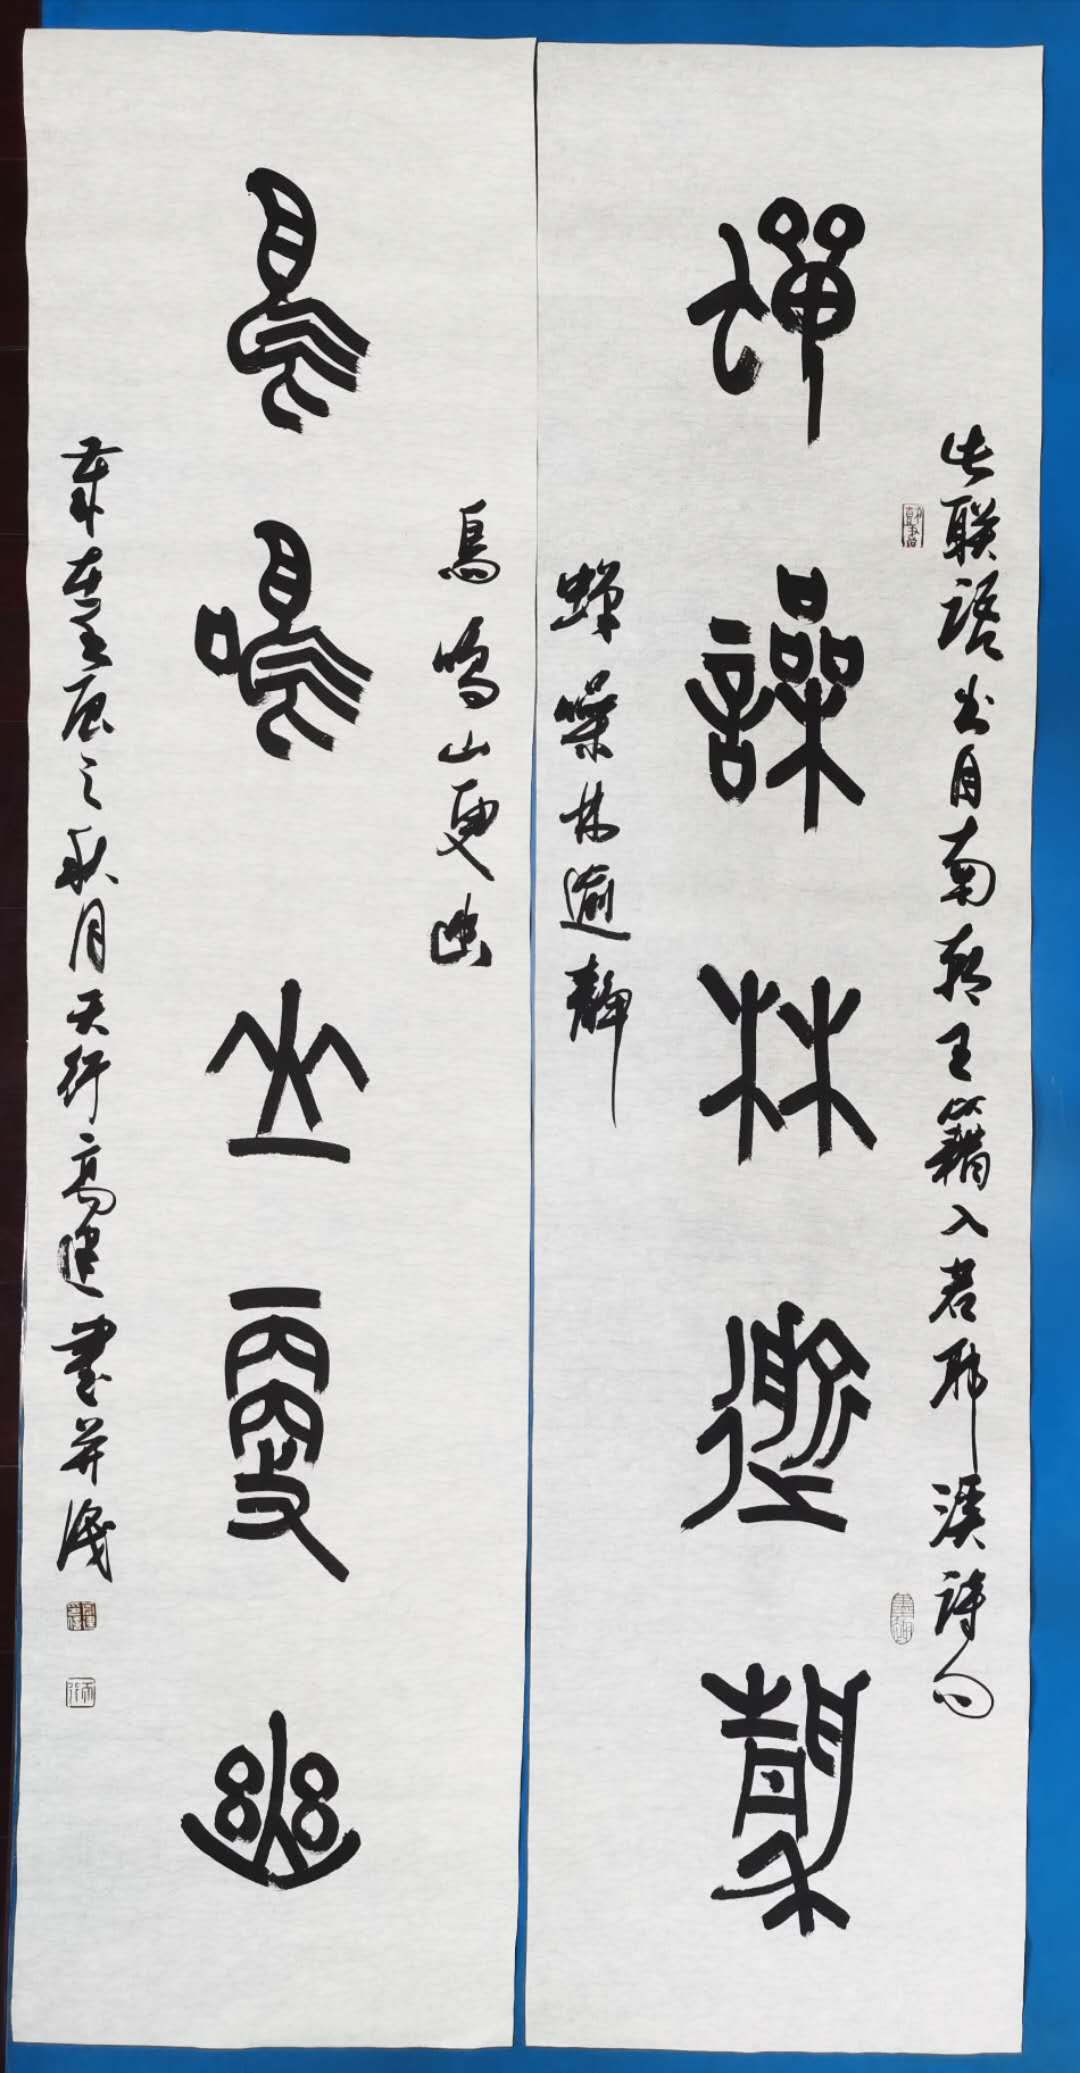 此联语出自南朝王籍入若耶溪诗句
蟬譟林逾靜
蝉噪林逾静
鳥鸣山更幽
鳥鳴山更幽
在辰之秋月天行高建書并識